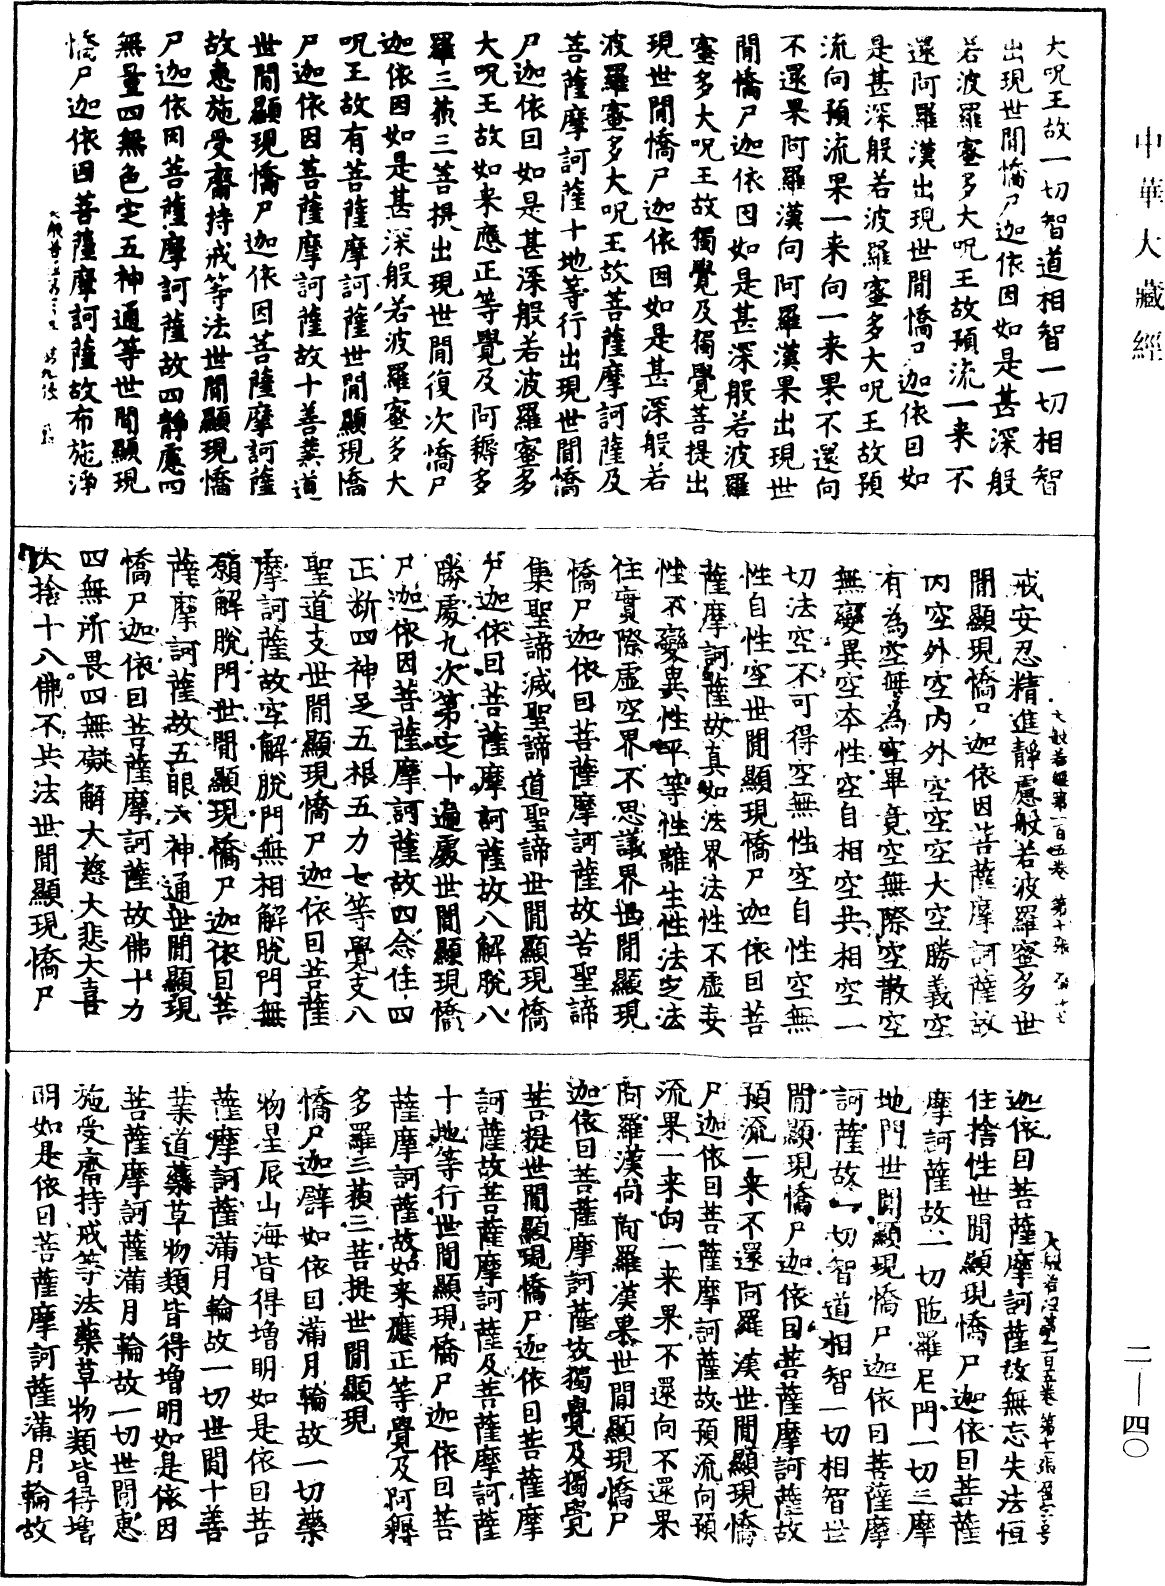 中華大藏經
大呪王故一切智道相智一切相智
出現世間憍尸迦依因如是甚深般
若波羅蜜多大呪王故預流一来不
還阿羅漢出現世間憍尸迦依因如
是甚深般若波羅蜜多大呪王故預
流向預流果一来向一来果不還向
不還果阿羅漢向阿羅漢果出現世
間憍尸迦依因如是甚深般若波羅
蜜多大呪王故獨覺及獨覺菩提出
現世間憍尸迦依因如是甚深般若
波羅蜜多大呪王故菩薩摩訶薩及
菩薩摩訶薩十地等行出現世間憍
尸迦依因如是甚深般若波羅蜜多
大呪王故如来應正等覺及阿耨多
羅三藐三菩提出現世間復次憍尸
迦依因如是甚深般若波羅蜜多大
呪王故有菩薩摩訶薩世間顯現憍
尸迦依因菩薩摩訶薩故十善業道
世間顯現憍尸迦依因菩薩摩訶薩
故惠施受齋持戒等法世間顯現憍
尸迦依因菩薩摩訶薩故四靜慮四
無量四無色定五神通等世間顯現
憍尸迦依因菩薩摩訶薩故布施淨
戒安忍精進靜慮般若波羅蜜多世
間顯現憍尸迦依因菩薩摩訶薩故
内空外空内外空空空大空勝義空
有為空無為空畢竟空無際空散空
無變異空本性空自相空共相空一
切法空不可得空無性空自性空無
性自性空世間顯現憍尸迦依因菩
薩摩訶薩故真如法界法性不虛妄
性不變異性平等性離生性法定法
住實際虛空界不思議界世間顯現
憍尸迦依因菩薩摩訶薩故苦聖諦
集聖諦滅聖諦道聖諦世間顯現憍
尸迦依因菩薩摩訶薩故八解脫八
勝處九次第定十遍處世間顯現憍
尸迦依因菩薩摩訶薩故四念住四
正断四神足五根五力七等覺支八
聖道支世間顯現憍尸迦依因菩薩
摩訶薩故空解脫門無相解脫門無
願解脫門世間顯現憍尸迦依因菩
薩摩訶薩故五眼六神通世間顯現
憍尸迦依因菩薩摩訶薩故佛十力
四無所畏四無礙解大慈大悲大喜
大捨十八佛不共法世間顯現憍尸
大般若經第一百五卷 第十張
迦依因菩薩摩訶薩故無忘失法恒
住捨性世間顯現憍尸迦依因菩薩
摩訶薩故一切陁羅尼門一切三摩
地門世間顯現憍尸迦依因菩薩摩
訶薩故一切智道相智一切相智世
間顯現憍尸迦依因菩薩摩訶薩故
預流一来不還阿羅漢世間顯現憍
尸迦依因菩薩摩訶薩故預流向預
流果一来向一来果不還向不還果
阿羅漢向阿羅漢果世間顯現憍尸
迦依因菩薩摩訶薩故獨覺及獨覺
菩提世間顯現憍尸迦依因菩薩摩
訶薩故菩薩摩訶薩及菩薩摩訶薩
十地等行世間顯現憍尸迦依因菩
薩摩訶薩故如来應正等覺及阿耨
多羅三藐三菩提世間顯現
憍尸迦譬如依因滿月輪故一切藥
物星辰山海皆得增明如是依因菩
薩摩訶薩滿月輪故一切世間十善
業道藥草物類皆得增明如是依因
菩薩摩訶薩滿月輪故一切世間惠
施受齋持戒等法藥草物類皆得增
明如是依因菩薩摩訶薩滿月輪故
二—四〇